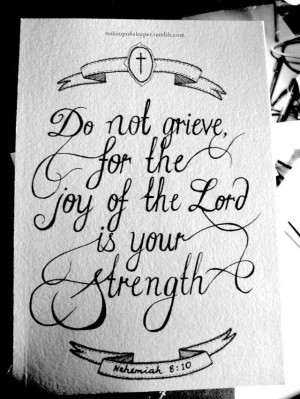 Do not grieve,
for the
joy of the Lord
is your
Strength
Nehemiah 8:10